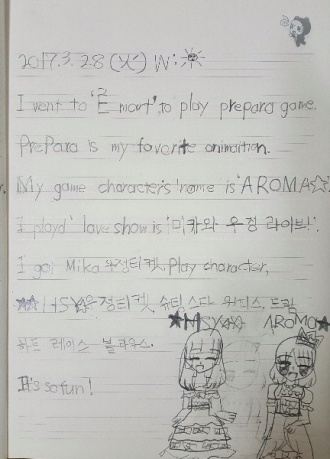 2017.3.28 (火) W:
I went to 'E mart', to play prepara game.
PrePara is my favorite animaition.
My game character's 'name is 'AROMA☆'
I playd' love show is '미카와 우정 라이브!'.
I got Mika 우정티켓, Play character,
★★HSY☆우정티켓, 슈티스타 원피스, 드림
하트 레이스 블라우스.
★HSY☆☆ AROMA★
It's so fun!